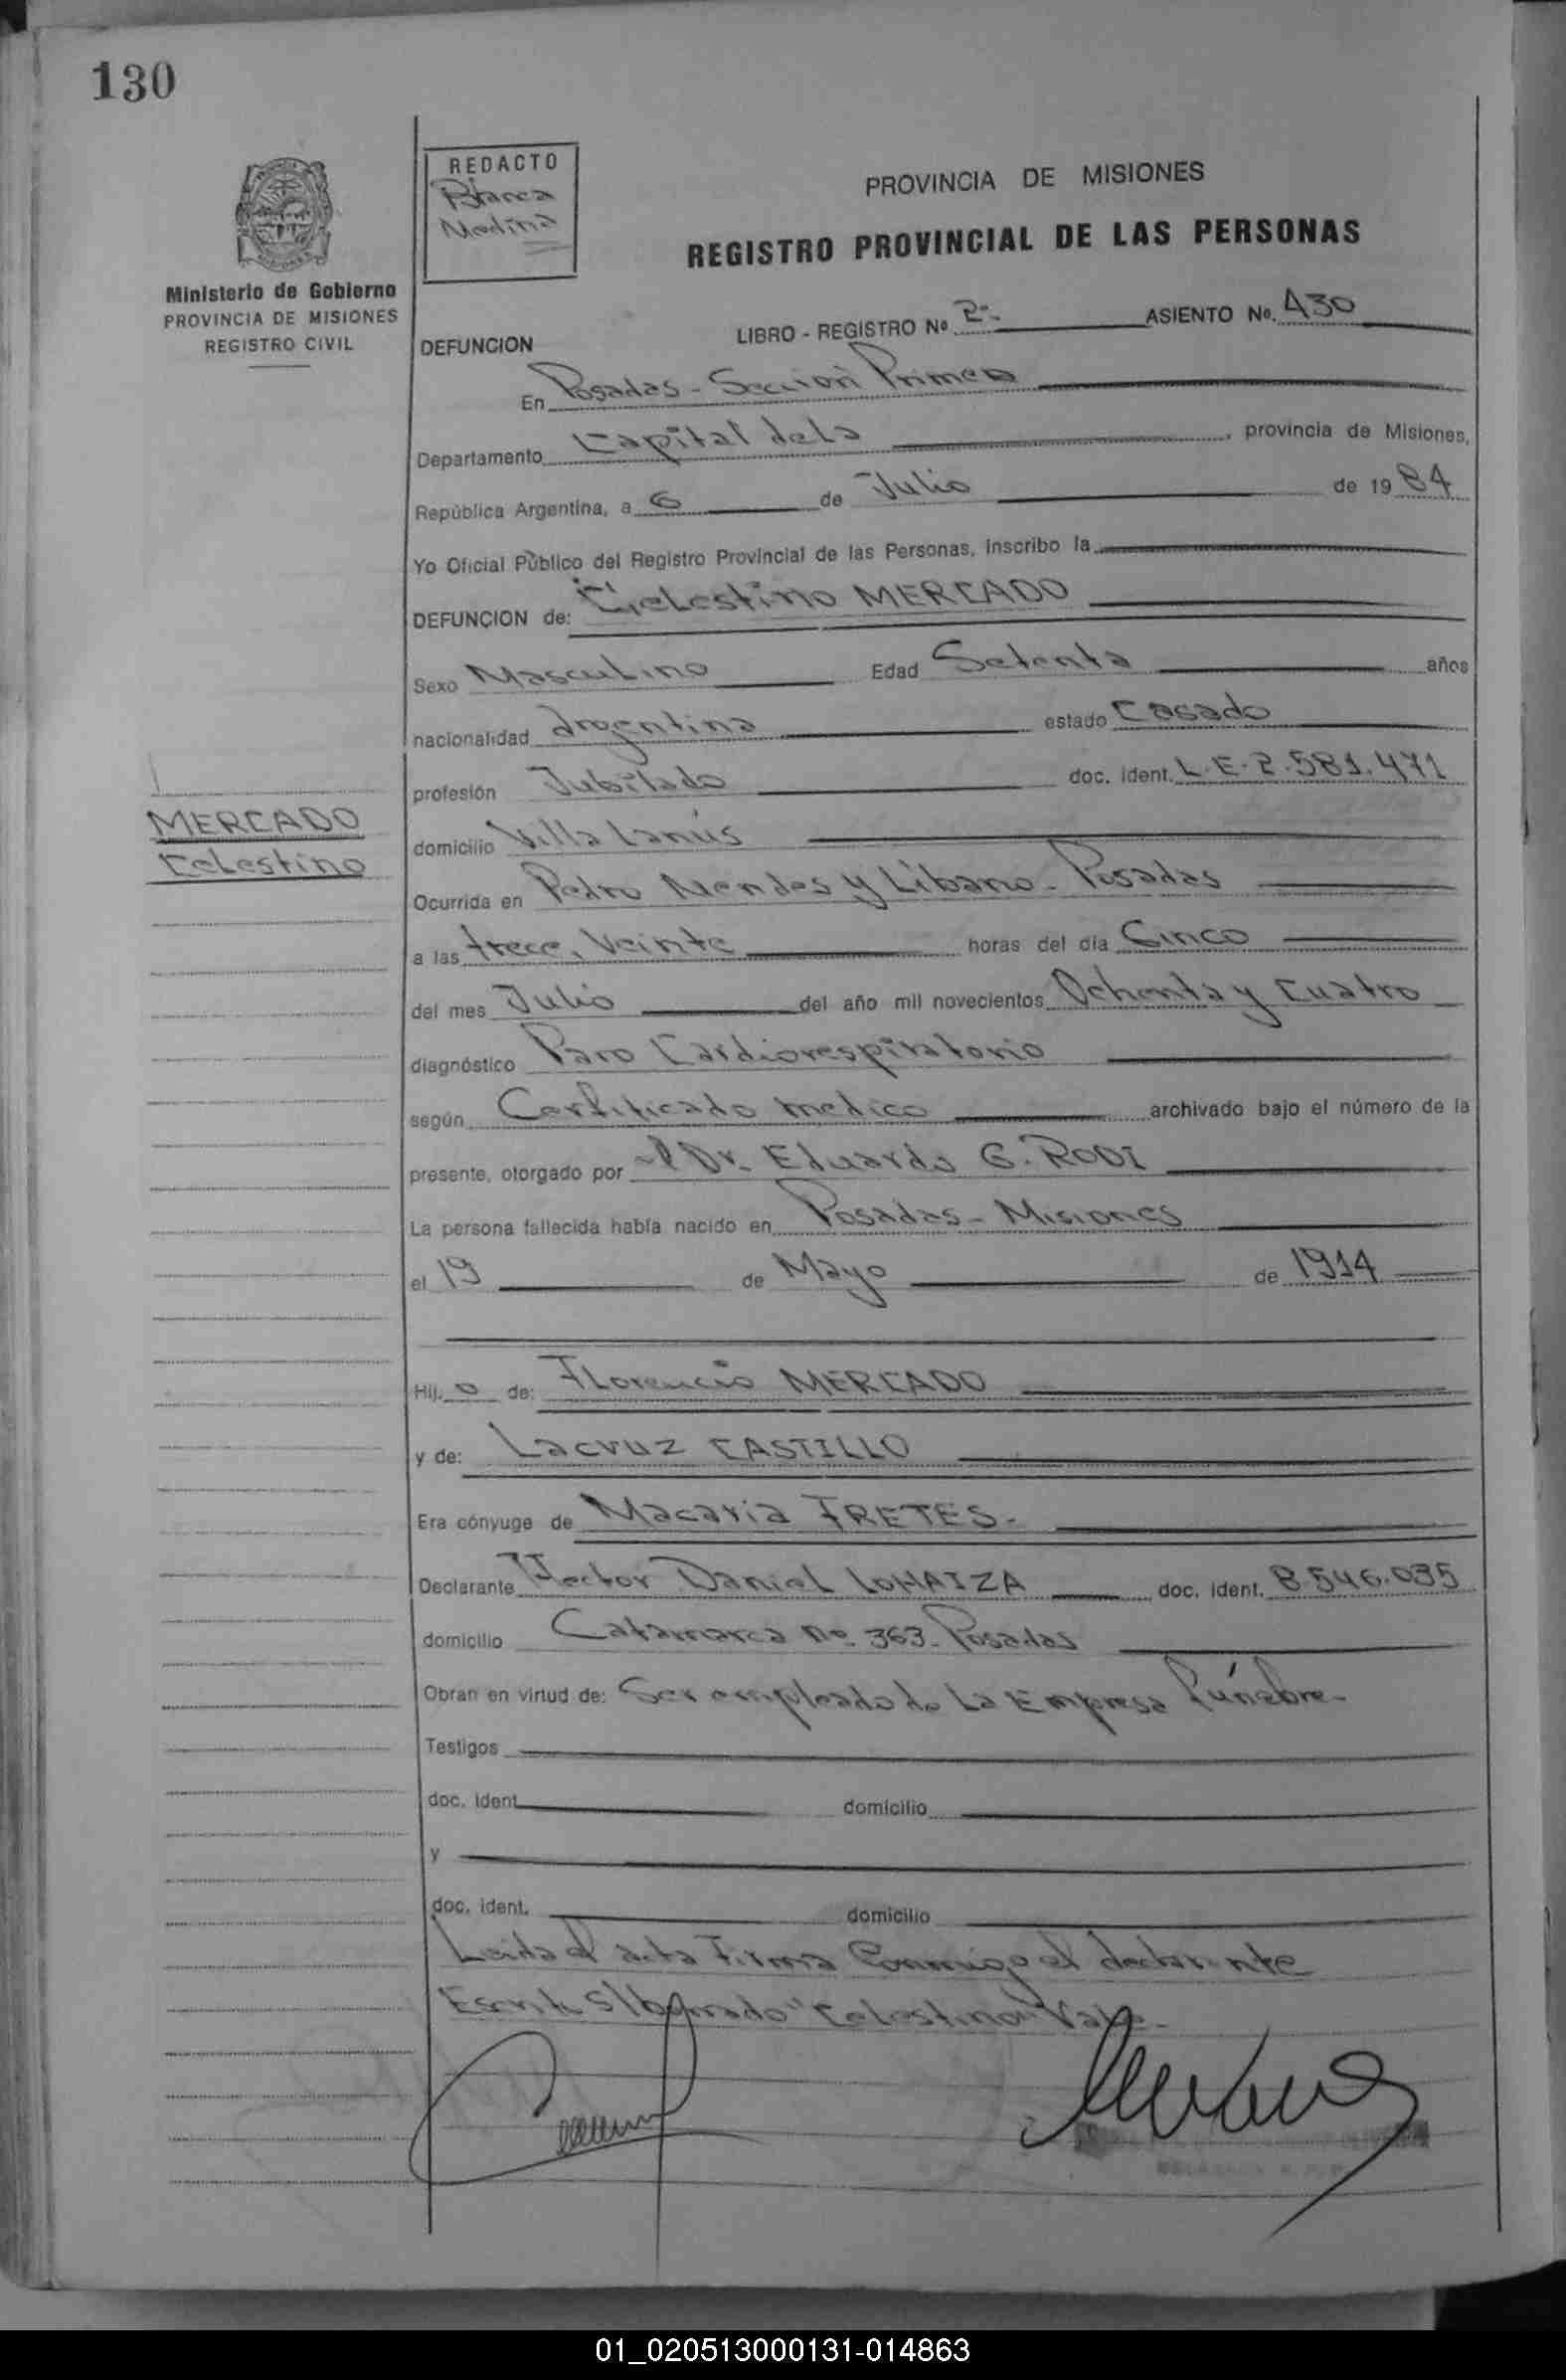 130
REDACTO
Blanca
Medina
Ministerio de Gobierno
PROVINCIA DE MISIONES
REGISTRO CIVIL
PROVINCIA DE MISIONES
REGISTRO PROVINCIAL DE LAS PERSONAS
DEFUNCION LIBRO - REGISTRO Nº 2º ASIENTO No. 430
En Posadas - Sección Primera
Departamento Capital de la , provincia de Misiones,
República Argentina, a 6 de Julio de 1984
Yo Oficial Público del Registro Provincial de las Personas, inscribo la
DEFUNCION de: Celestino MERCADO
Sexo Masculino Edad Setenta años
nacionalidad Argentina estado Casado
profesión Jubilado doc. ident. L.E. 2.581.471
MERCADO
Celestino
domicilio Villa Lanús
Ocurrida en Pedro Mendes y Libano - Posadas
a las trece, Veinte horas del día Cinco
del mes Julio del año mil novecientos Ochenta y Cuatro
diagnóstico Paro Cardiorespiratorio
según Certificado medico archivado bajo el número de la
presente, otorgado por el Dr. Eduardo G. RODI
La persona fallecida había nacido en Posadas - Misiones
el 19 de Mayo de 1914
Hij o de: Florencio MERCADO
y de: Lacruz CASTILLO
Era cónyuge de Macaria FRETES.-
Declarante Hector Daniel LOMAIZA doc. ident. 8.546.035
domicilio Catamarca nº 363 - Posadas
Obran en virtud de: Ser empleado de La Empresa Fúnebre.-
Testigos
doc. ident. domicilio
y
doc. ident. domicilio
Leida el acta Firma Conmigo el declarante
Escrito S/borrado "Celestino" Vale.-
01_020513000131-014863